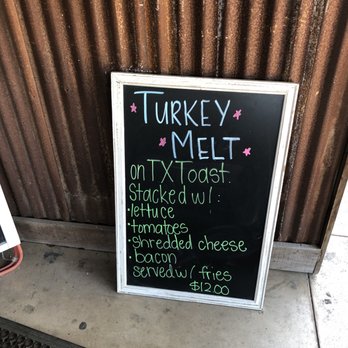 TURKEY
MELT
on TX Toast.
Stacked w/:
·lettuce
·tomatoes
·shredded cheese
·bacon
served w/ fries
$12.00